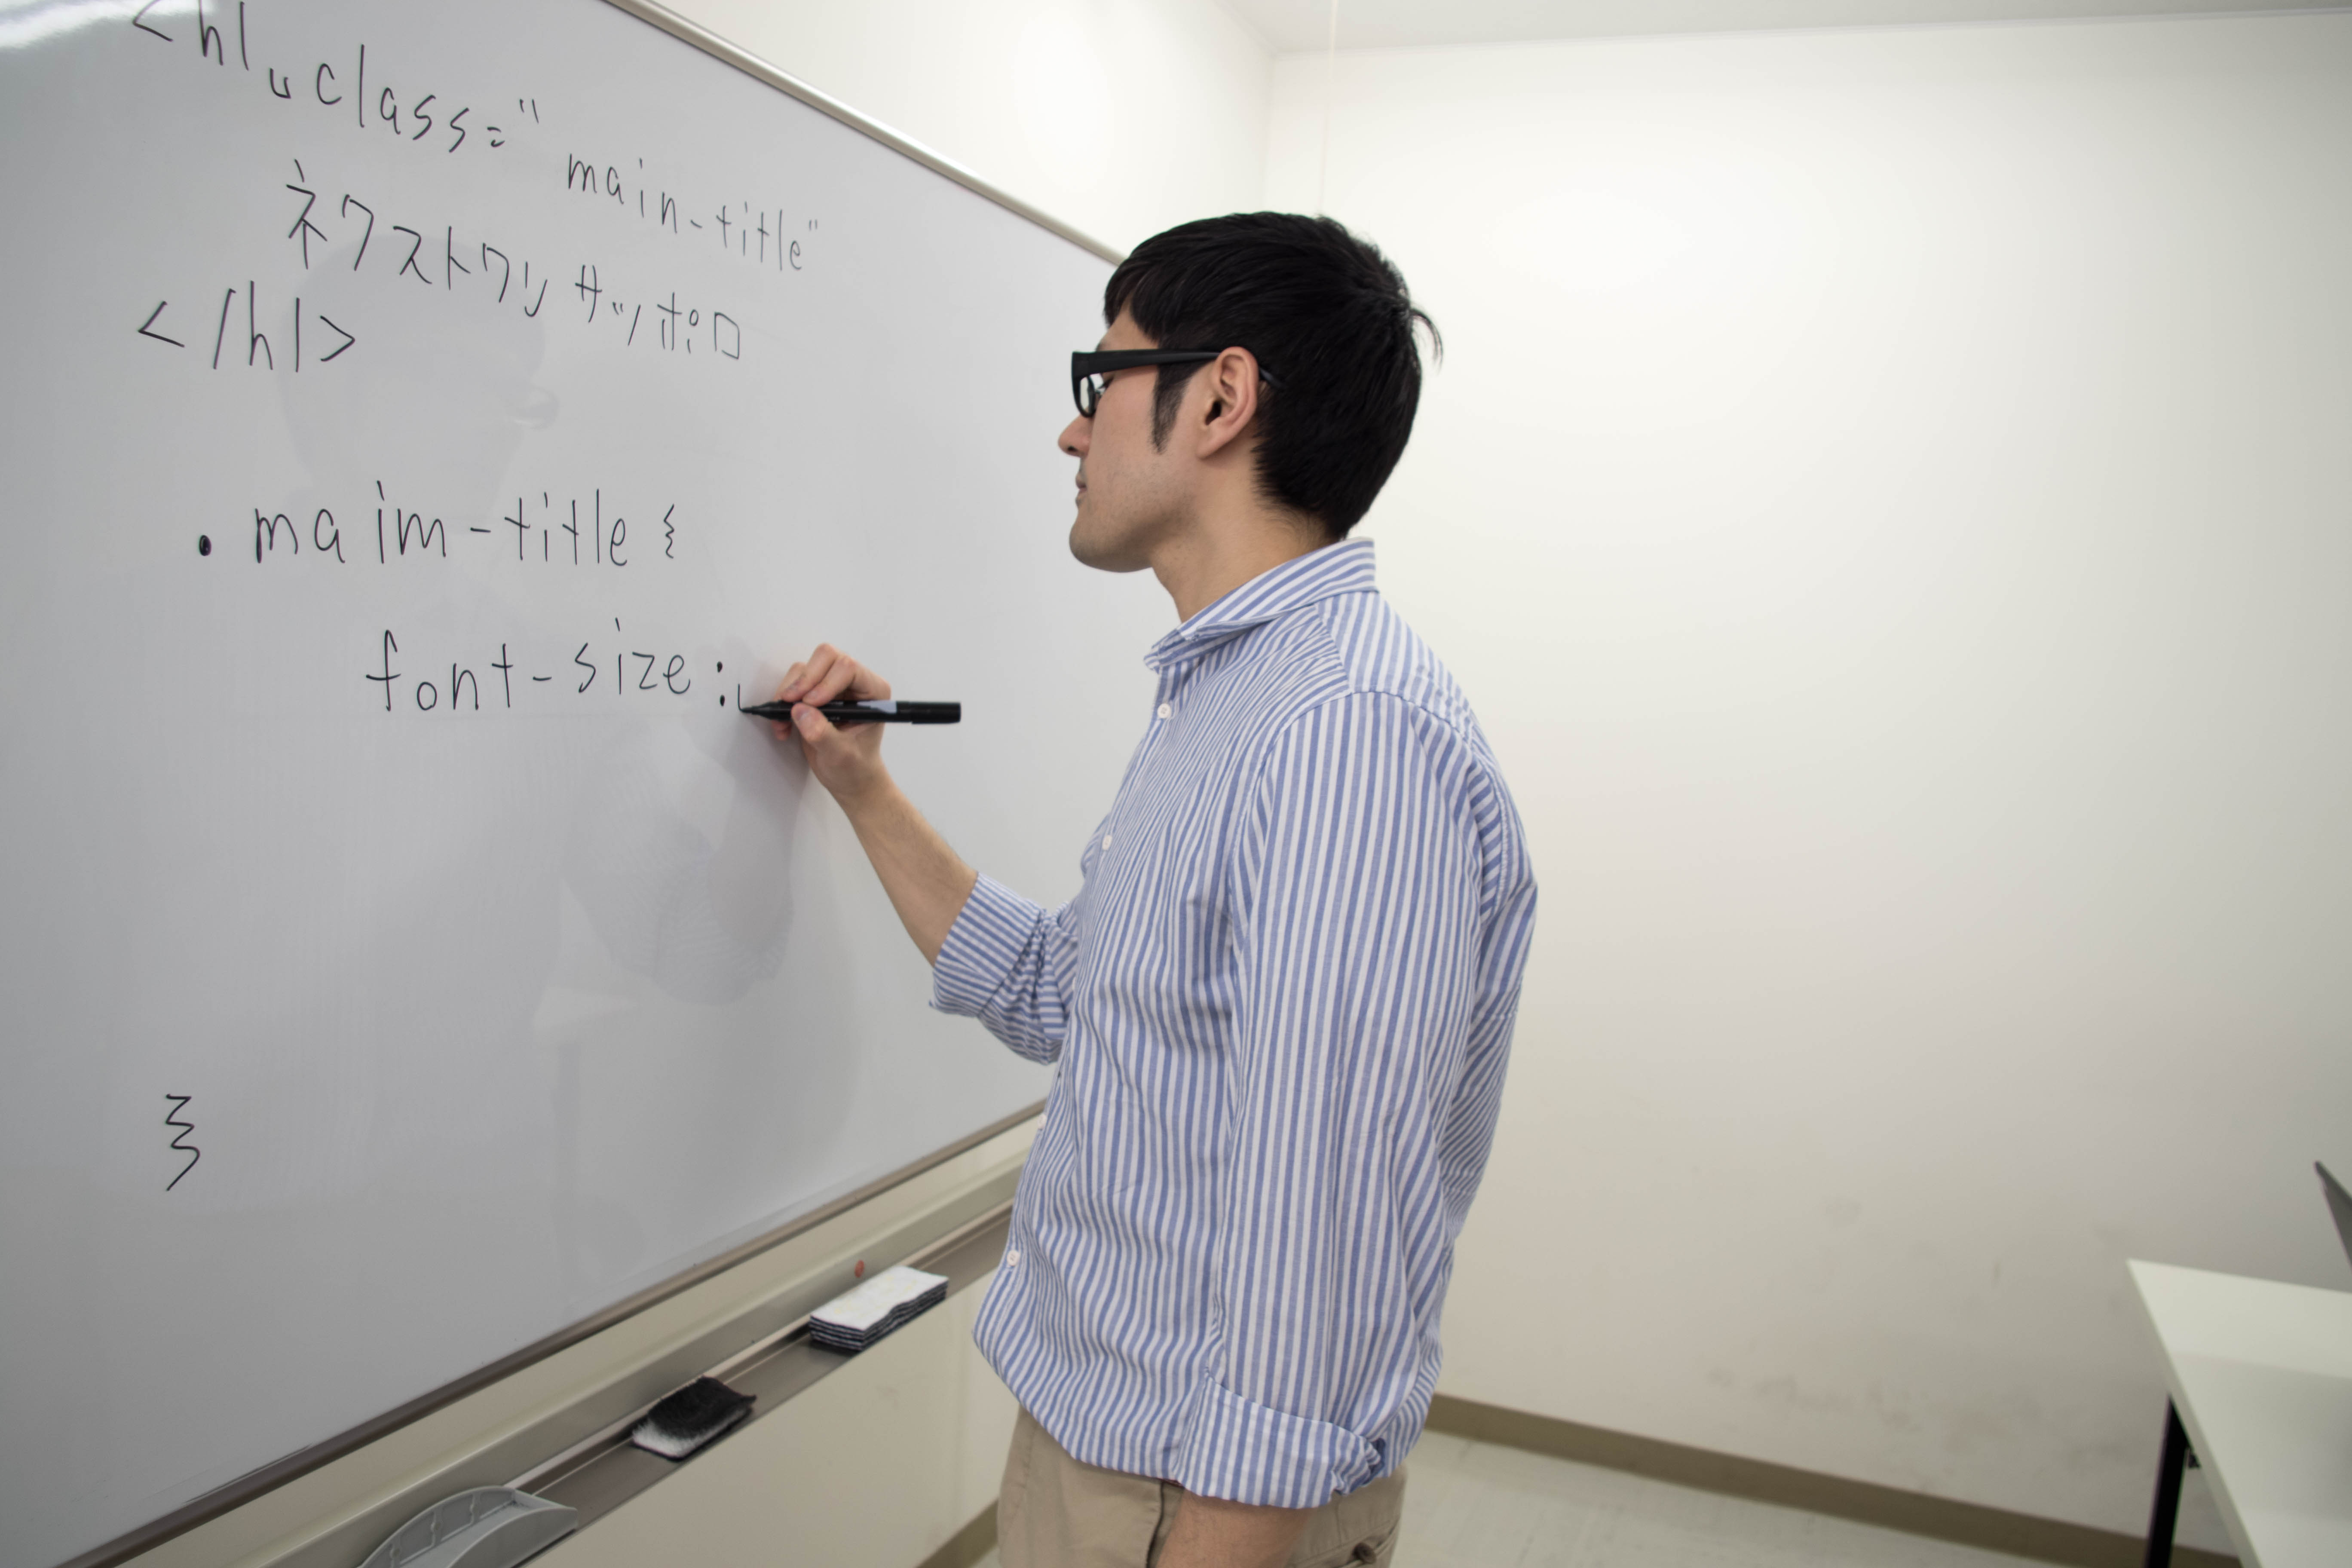 <h1␣class="main-title"
ネクストワリサッポロ
</h1>
.maim-title {
font-size:
}